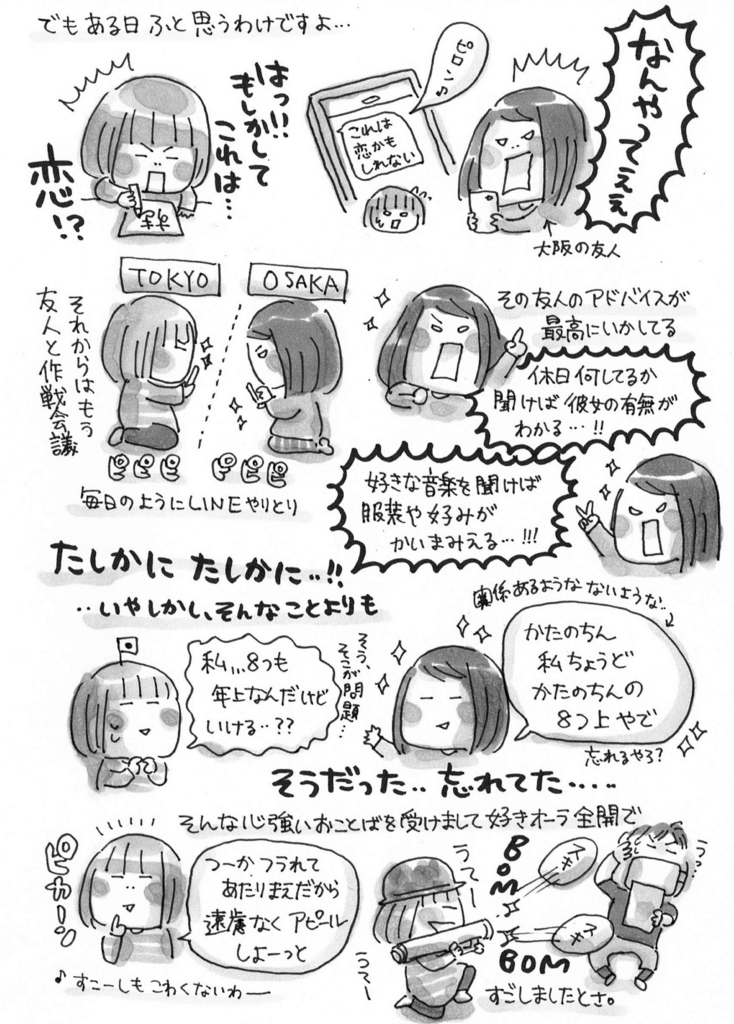 でもある日ふと思うわけですよ…
はっ!!
もしかして
これは…
恋!?
ピロン♪
これは
恋かも
しれない
なんやってえぇ
大阪の友人
TOKYO
OSAKA
それからはもう
友人と作戦会議
ピピピ
ピピピ
毎日のようにLINEやりとり
その友人のアドバイスが
最高にいかしてる
休日何してるか
聞けば彼女の有無が
わかる…!!
好きな音楽を聞けば
服装や好みが
かいまみえる…!!!
たしかに たしかに‥!!
‥いやしかし、そんなことよりも
私…8つも
年上なんだけど
いける‥??
そう、
そこが問題…
関係あるような ないような‥
かたのちん
私ちょうど
かたのちんの
8つ上やで
忘れるやろ?
そうだった‥忘れてた‥‥‥
そんな心強いおことばを受けまして好きオーラ全開で
ピカーン
つーかフラれて
あたりまえだから
遠慮なくアピール
しよーっと
♪すこーしもこわくないわー
うてー
うてー
BOM
スキ
BOM
スキ
うっ…
すごしましたとさ。